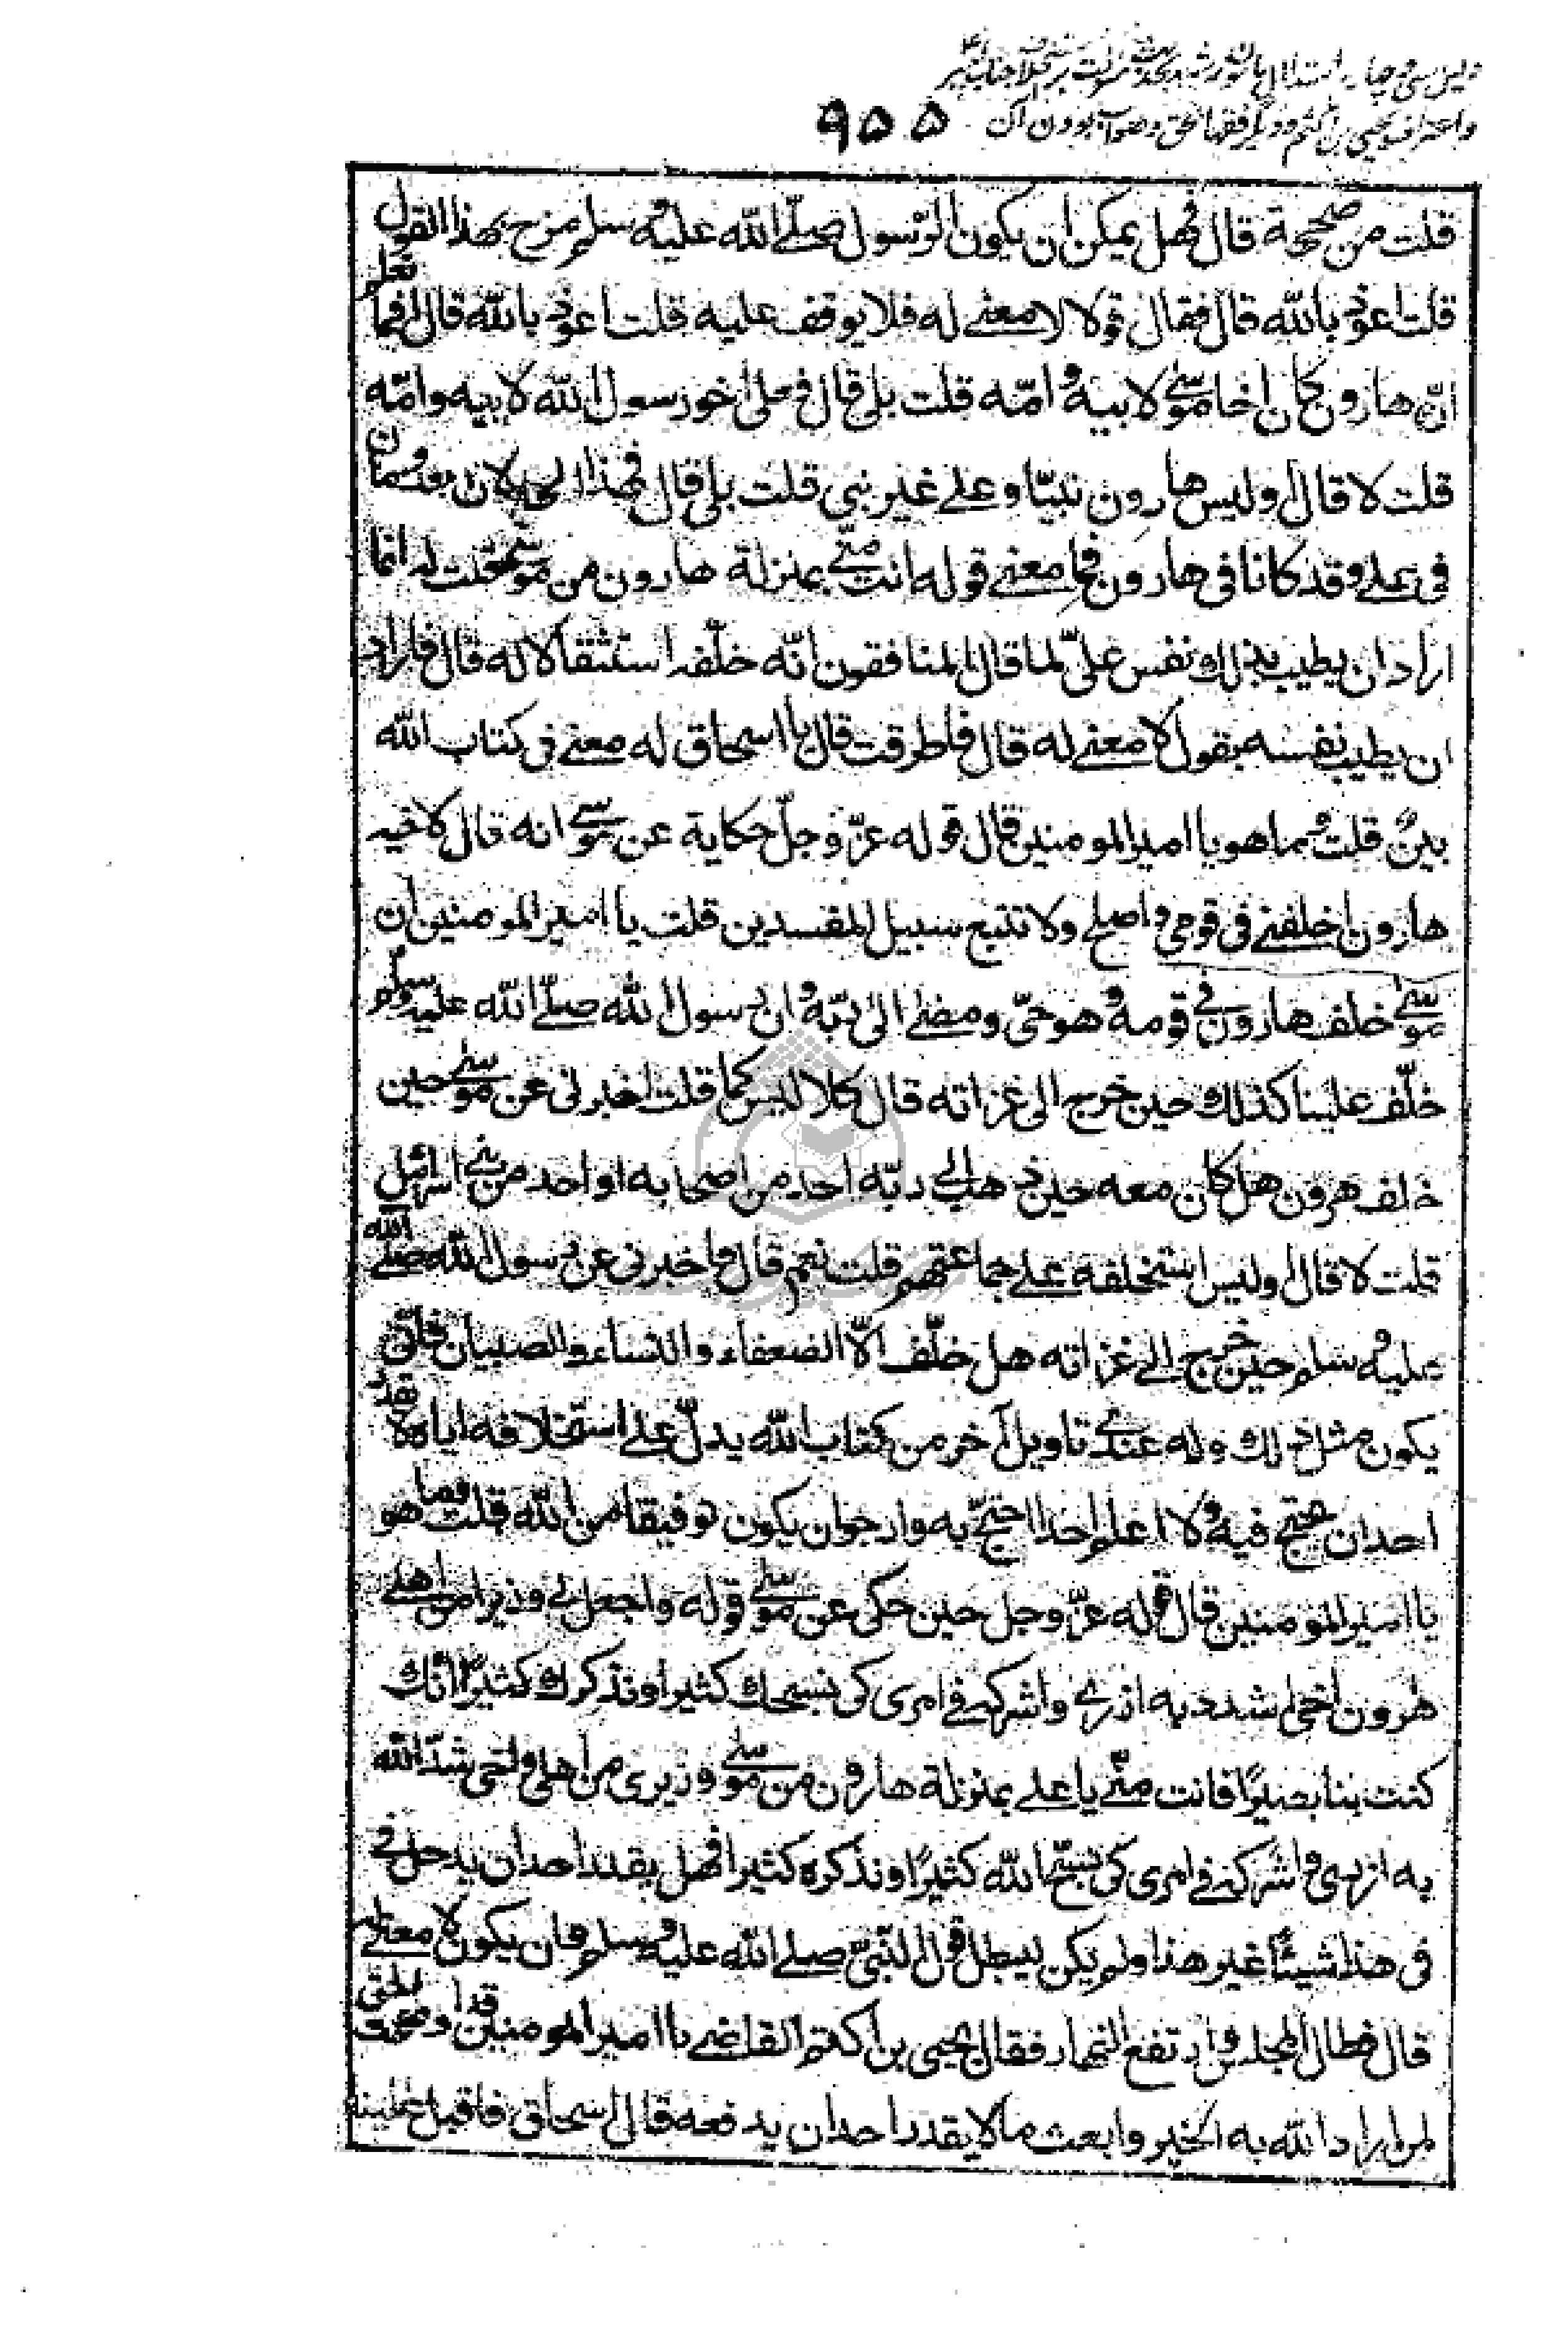 دلیل سی و چهارم استدلال مامون رشید بحدیث منزلت بر خلافت جناب امیر
و اعتراف یحیی بن اکثم و دیگر فقها بحق و صواب بودن آن
۹۵۵
قلت من صححه قال فهل يمكن ان يكون الرسول صلى الله عليه وسلم مزح بهذا القول
قلت اعوذ بالله قال فقال قولا لا معنى له فلا يوقف عليه قلت اعوذ بالله قال افما تعلم
ان هارون كان اخا موسى لابيه وامّه قلت بلى قال فعلى اخو رسول الله لابيه وامّه
قلت لا قال اوليس هارون نبيّا وعلى غير نبى قلت بلى قال فهذا الحالان معدومان
فى على وقد كانا فى هارون فما معنى قوله انت منّى بمنزلة هارون من موسى قلت له انما
اراد ان يطيب بذلك نفس علىّ لما قال المنافقون انّه خلّفه استثقالا له قال فاراد
ان يطيب نفسه بقول لا معنى له قال فاطرقت قال يا اسحاق له معنى فى كتاب الله
بيّنٌ قلت وما هو يا امير المومنين قال قوله عزّ وجلّ حكاية عن موسى انه قال لاخيه
هارون اخلفنى فى قومى واصلح ولا تتبع سبيل المفسدين قلت يا امير المومنين ان
موسى خلف هارون فى قومه وهو حىّ ومضى الى ربّه وان رسول الله صلّى الله عليه وسلم
خلّف عليّنا كذلك حين خرج الى غزاته قال كلا ليس كما قلت اخبرنى عن موسى حين
خلف هرون هل كان معه حين ذهب الى ربّه احد من اصحابه او احد من بنى اسرائيل
قلت لا قال اوليس استخلفه على جماعتهم قلت نعم قال فاخبرنى عن رسول الله صلى الله
عليه وسلم حين خرج الى غزاته هل خلّف الّا الضعفاء والنساء والصبيان فانّى
يكون مثل ذلك وله عندى تاويل آخر من كتاب الله يدلّ على استخلافه اياه لا يقدر
احد ان يحتج فيه ولا اعلم احدا احتجّ به وارجو ان يكون توفيقا من الله قلت وما هو
يا امير المومنين قال قوله عزّ وجل حين حكى عن موسى قوله واجعل لى وزيرا من اهلى
هرون اخى اشدد به ازرى واشركه فى امرى كى نسبحك كثيرا ونذكرك كثيرًا انّك
كنت بنا بصيرًا فانت منّى يا على بمنزلة هارون من موسى وزيرى من اهلى واخى شدّ الله
به ازرى واشركه فى امرى كى نسبّح الله كثيرًا ونذكره كثيرا فهل يقدر احد ان يدخل فى
فى هذا شيئًا غير هذا ولم يكن ليبطل قول النّبىّ صلى الله عليه وسلم وان يكون لا معنى له
قال فطال المجلس وارتفع النهار فقال يحيى بن اكثم القاضى يا امير المومنين قد اوضحت الحق
لمن اراد الله به الخير وابعث ما لا يقدر احد ان يدفعه قال اسحاق فاقبل علينا